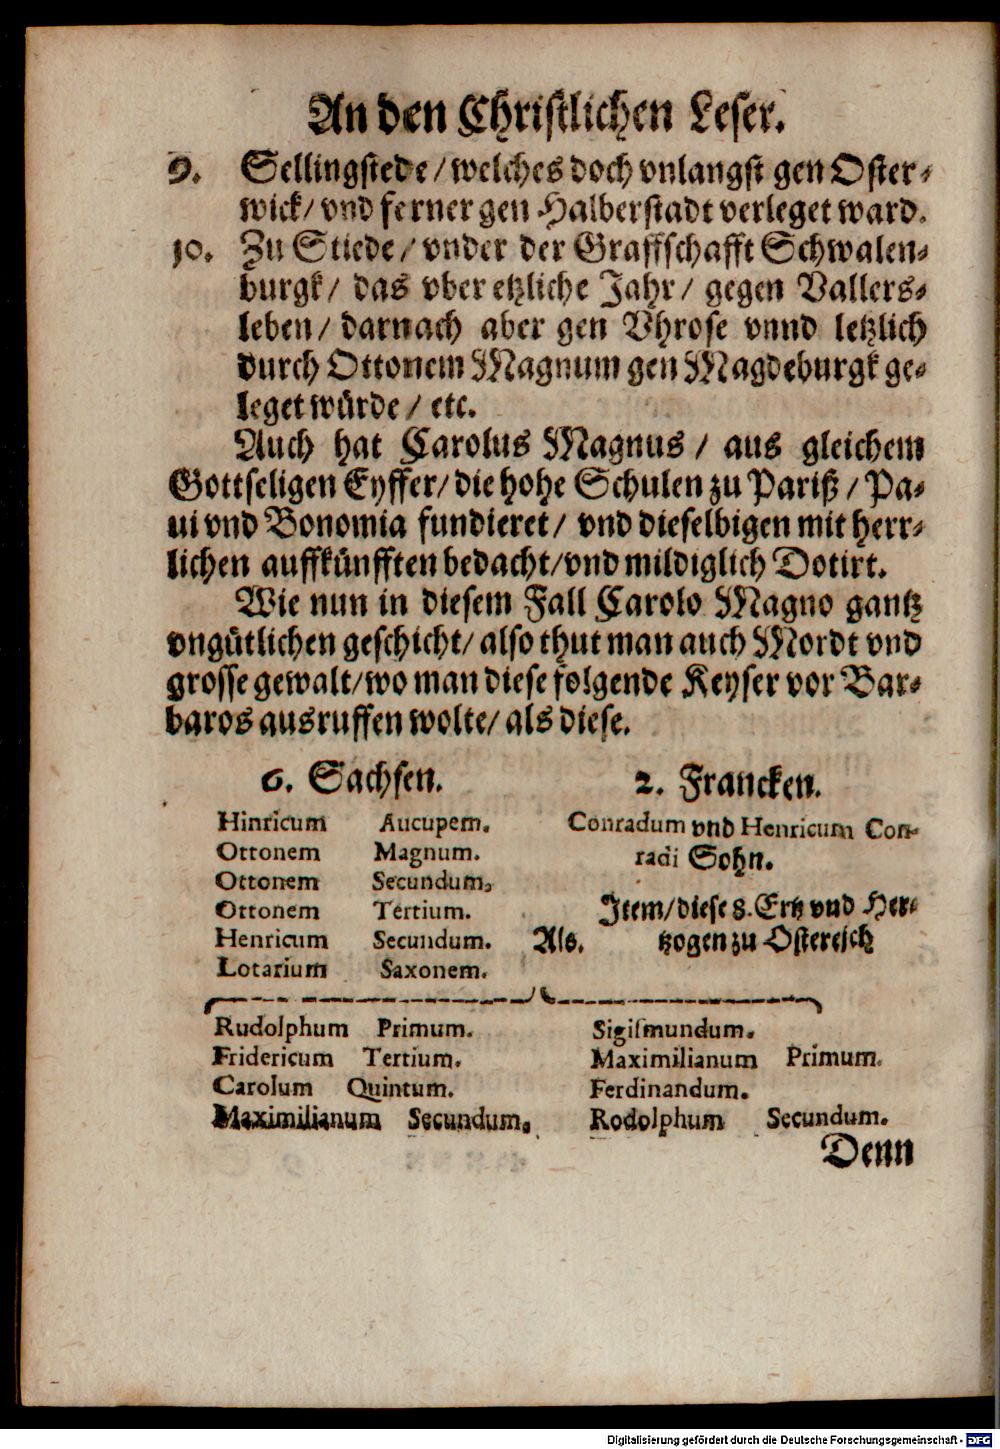 An den Christlichen Leser.
9. Sellingstede / welches doch vnlangst gen Oster-
wick / vnd ferner gen Halberstadt verleget ward.
10. Zu Stiede / vnder der Graffschafft Schwalen-
burgk / das vber etzliche Jahr / gegen Vallers-
leben / darnach aber gen Vhrose vnnd letzlich
durch Ottonem Magnum gen Magdeburgk ge-
leget würde / etc.
Auch hat Carolus Magnus / aus gleichem
Gottseligen Eyffer / die hohe Schulen zu Pariß / Pa-
ui vnd Bonomia fundieret / vnd dieselbigen mit herr-
lichen auffkünfften bedacht / vnd mildiglich Dotirt.
Wie nun in diesem Fall Carolo Magno gantz
vngütlichen geschicht / also thut man auch Mordt vnd
grosse gewalt / wo man diese folgende Keyser vor Bar-
baros ausruffen wolte / als diese.
6. Sachsen.
Hinricum Aucupem.
Ottonem Magnum.
Ottonem Secundum,
Ottonem Tertium.
Henricum Secundum.
Lotarium Saxonem.
2. Francken.
Conradum vnd Henricum Con-
radi Sohn.
Item / diese 8. Ertz vnd Her-
Als. tzogen zu Ostereich
Rudolphum Primum.
Fridericum Tertium.
Carolum Quintum.
Maximilianum Secundum.
Sigismundum.
Maximilianum Primum.
Ferdinandum.
Rodolphum Secundum.
Denn
Digitalisierung gefördert durch die Deutsche Forschungsgemeinschaft - DFG